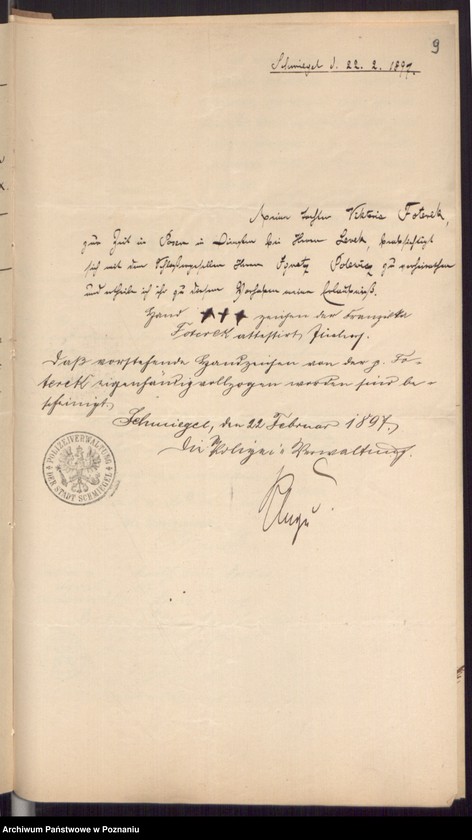 9
Schmiegel d. 22. 2. 1897.
Meine Tochter Viktoria Foterek,
zur Zeit in Posen in Diensten bei Herrn Lerek, beabsichtigt
sich mit dem Schlossergesellen Herrn Ignatz Polewicz zu verheirathen
und ertheile ich ihr zu diesem Vorhaben meine Erlaubniß.
Hand +++ zeichen der Franziska
Foterek attestirt
Daß vorstehende Handzeichen von der p. Fo-
terek eigenhändig vollzogen worden sind be-
scheinigt
Schmiegel, den 22 Februar 1897.
Die Polizei-Verwaltung.
POLIZEIVERWALTUNG
DER STADT SCHMIEGEL
Archiwum Państwowe w Poznaniu